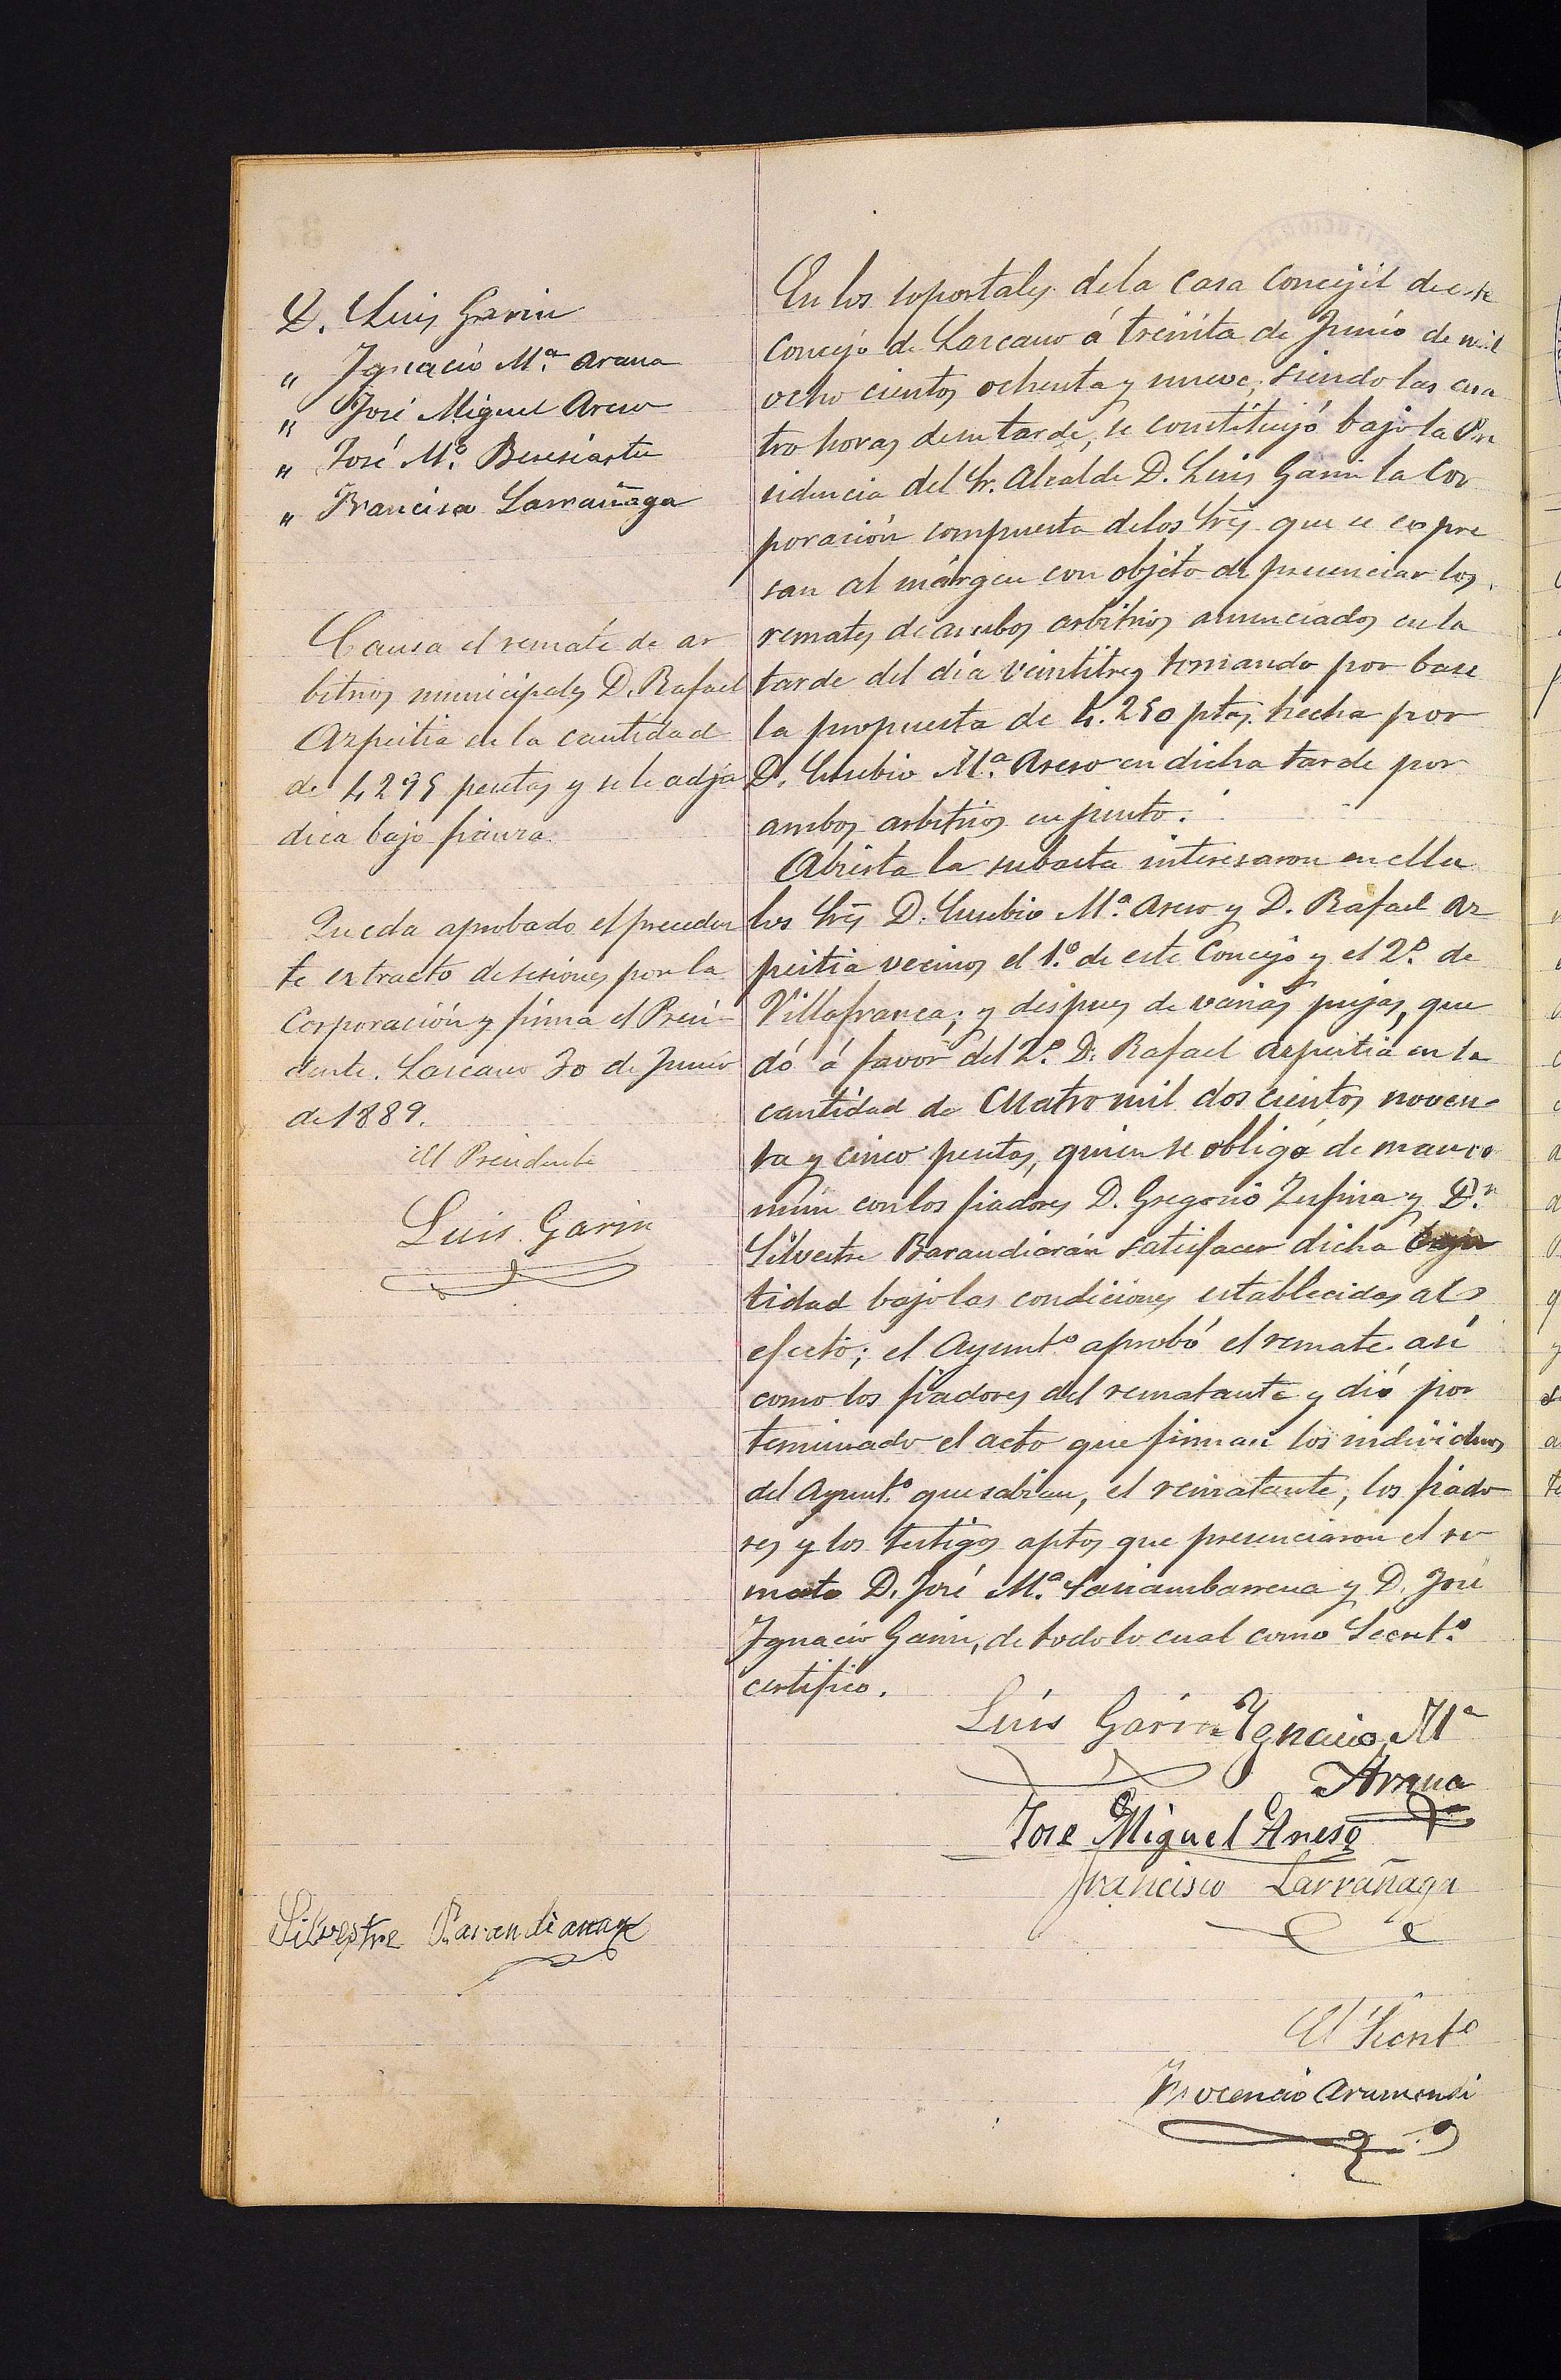 D. Luis Garin
" Ignacio Mª. Arana
" José Miguel Areso
" José Mª. Beresiartu
" Francisco Larrañaga
Causa el remate de ar
bitrios municipales D. Rafael
Azpeitia en la cantidad
de 4295 pesetas y se le adju
dica bajo fianza.
Queda aprobado el preceden
te extracto de sesiones por la
Corporación y firma el Presi-
dente. Lazcano 30 de Junio
de 1889.
El Presidente
Luis Garin
Silvestre Barandiaran
En los soportales de la Casa Concejil de este
Concejo de Lazcano á treinta de Junio de mil
ocho cientos ochenta y nueve, siendo las cua
tro horas de su tarde, se constituyó bajo la Pre
sidencia del Sr. Alcalde D. Luis Garin la Cor
poración compuesta de los Srs̃ que se expre
san al márgen con objeto de presenciar los
remates de ambos arbitrios anunciados en la
tarde del día veintitres tomando por base
la propuesta de 4.250 ptas. hecha por
D. Eusebio Mª. Areso en dicha tarde por
ambos arbitrios en junto.
Abierta la subasta interesaron en ella
los Srs̃ D. Eusebio Mª. Areso y D. Rafael Az
peitia vecinos el 1º. de este Concejo y el 2º. de
Villafranca; y despues de varias pujas, que
dó á favor del 2º. D. Rafael Azpeitia en la
cantidad de Cuatro mil dos cientos noven-
ta y cinco pesetas, quien se obligó de manco
mún con los fiadores D. Gregorio Zufiria y Dn.
Silvestre Barandiarán satisfacer dicha
tidad bajo las condiciones establecidas al
efecto; el Ayuntº aprobó el remate así
como los fiadores del rematante y dió por
terminado el acto que firman los individuos
del Ayuntº. que sabian, el rematante, los fiado
res y los testigos aptos que presenciaron el re
mate D. José Mª. Sarriambarrena y D. José
Ignacio Garin, de todo lo cual como Secretº.
certifico.
Luis Garin Ignacio Mª
Arana
Jose Miguel Areso
Francisco Larrañaga
El Secretº
Inocencio Aramendi